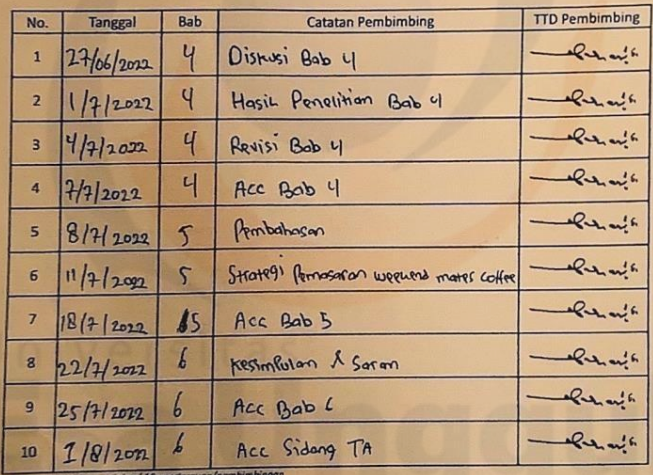 No. Tanggal Bab Catatan Pembimbing TTD Pembimbing
1 27/06/2022 4 Diskusi Bab 4
2 1/7/2022 4 Hasil Penelitian Bab 4
3 4/7/2022 4 Revisi Bab 4
4 7/7/2022 4 Acc Bab 4
5 8/7/2022 5 Pembahasan
6 11/7/2022 5 Strategi Pemasaran weekend mates coffee
7 18/7/2022 5 Acc Bab 5
8 22/7/2022 6 Kesimpulan & Saran
9 25/7/2022 6 Acc Bab 6
10 1/8/2022 6 Acc Sidang TA